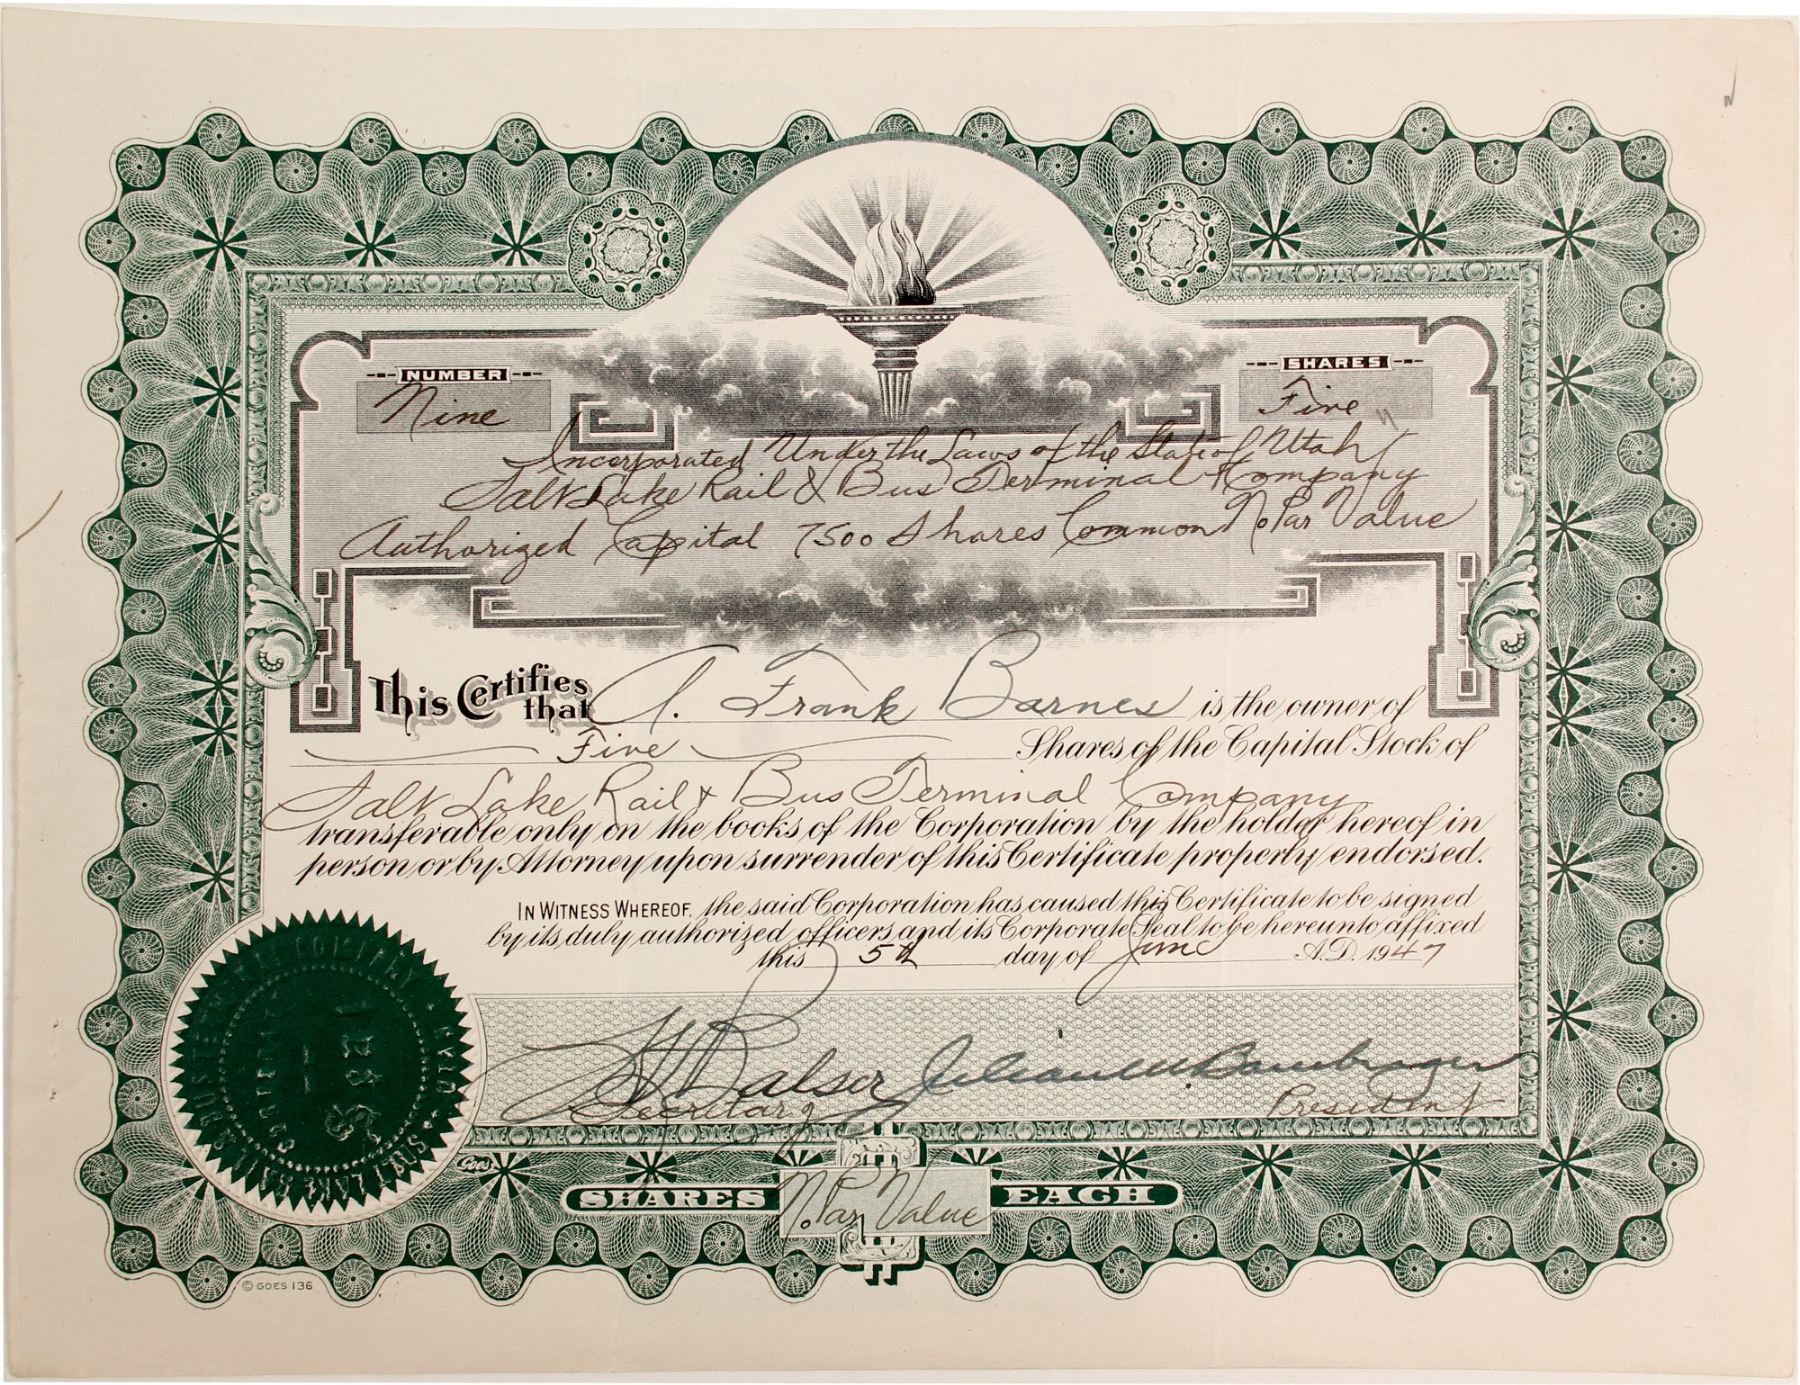 NUMBER
Nine
SHARES
Five
Incorporated Under the Laws of the State of Utah
Salt Lake Rail & Bus Terminal Company
Authorized Capital 7500 Shares Common No Par Value
This Certifies that A. Frank Barnes is the owner of
Five Shares of the Capital Stock of
Salt Lake Rail & Bus Terminal Company
transferable only on the books of the Corporation by the holder hereof in
person or by Attorney upon surrender of this Certificate properly endorsed.
IN WITNESS WHEREOF, the said Corporation has caused this Certificate to be signed
by its duly authorized officers and its Corporate Seal to be hereunto affixed
this 5th day of June A.D. 1947
Balser Julian M. Bamberger
Secretary President
Seal
Goes
SHARES No Par Value EACH
© GOES 136